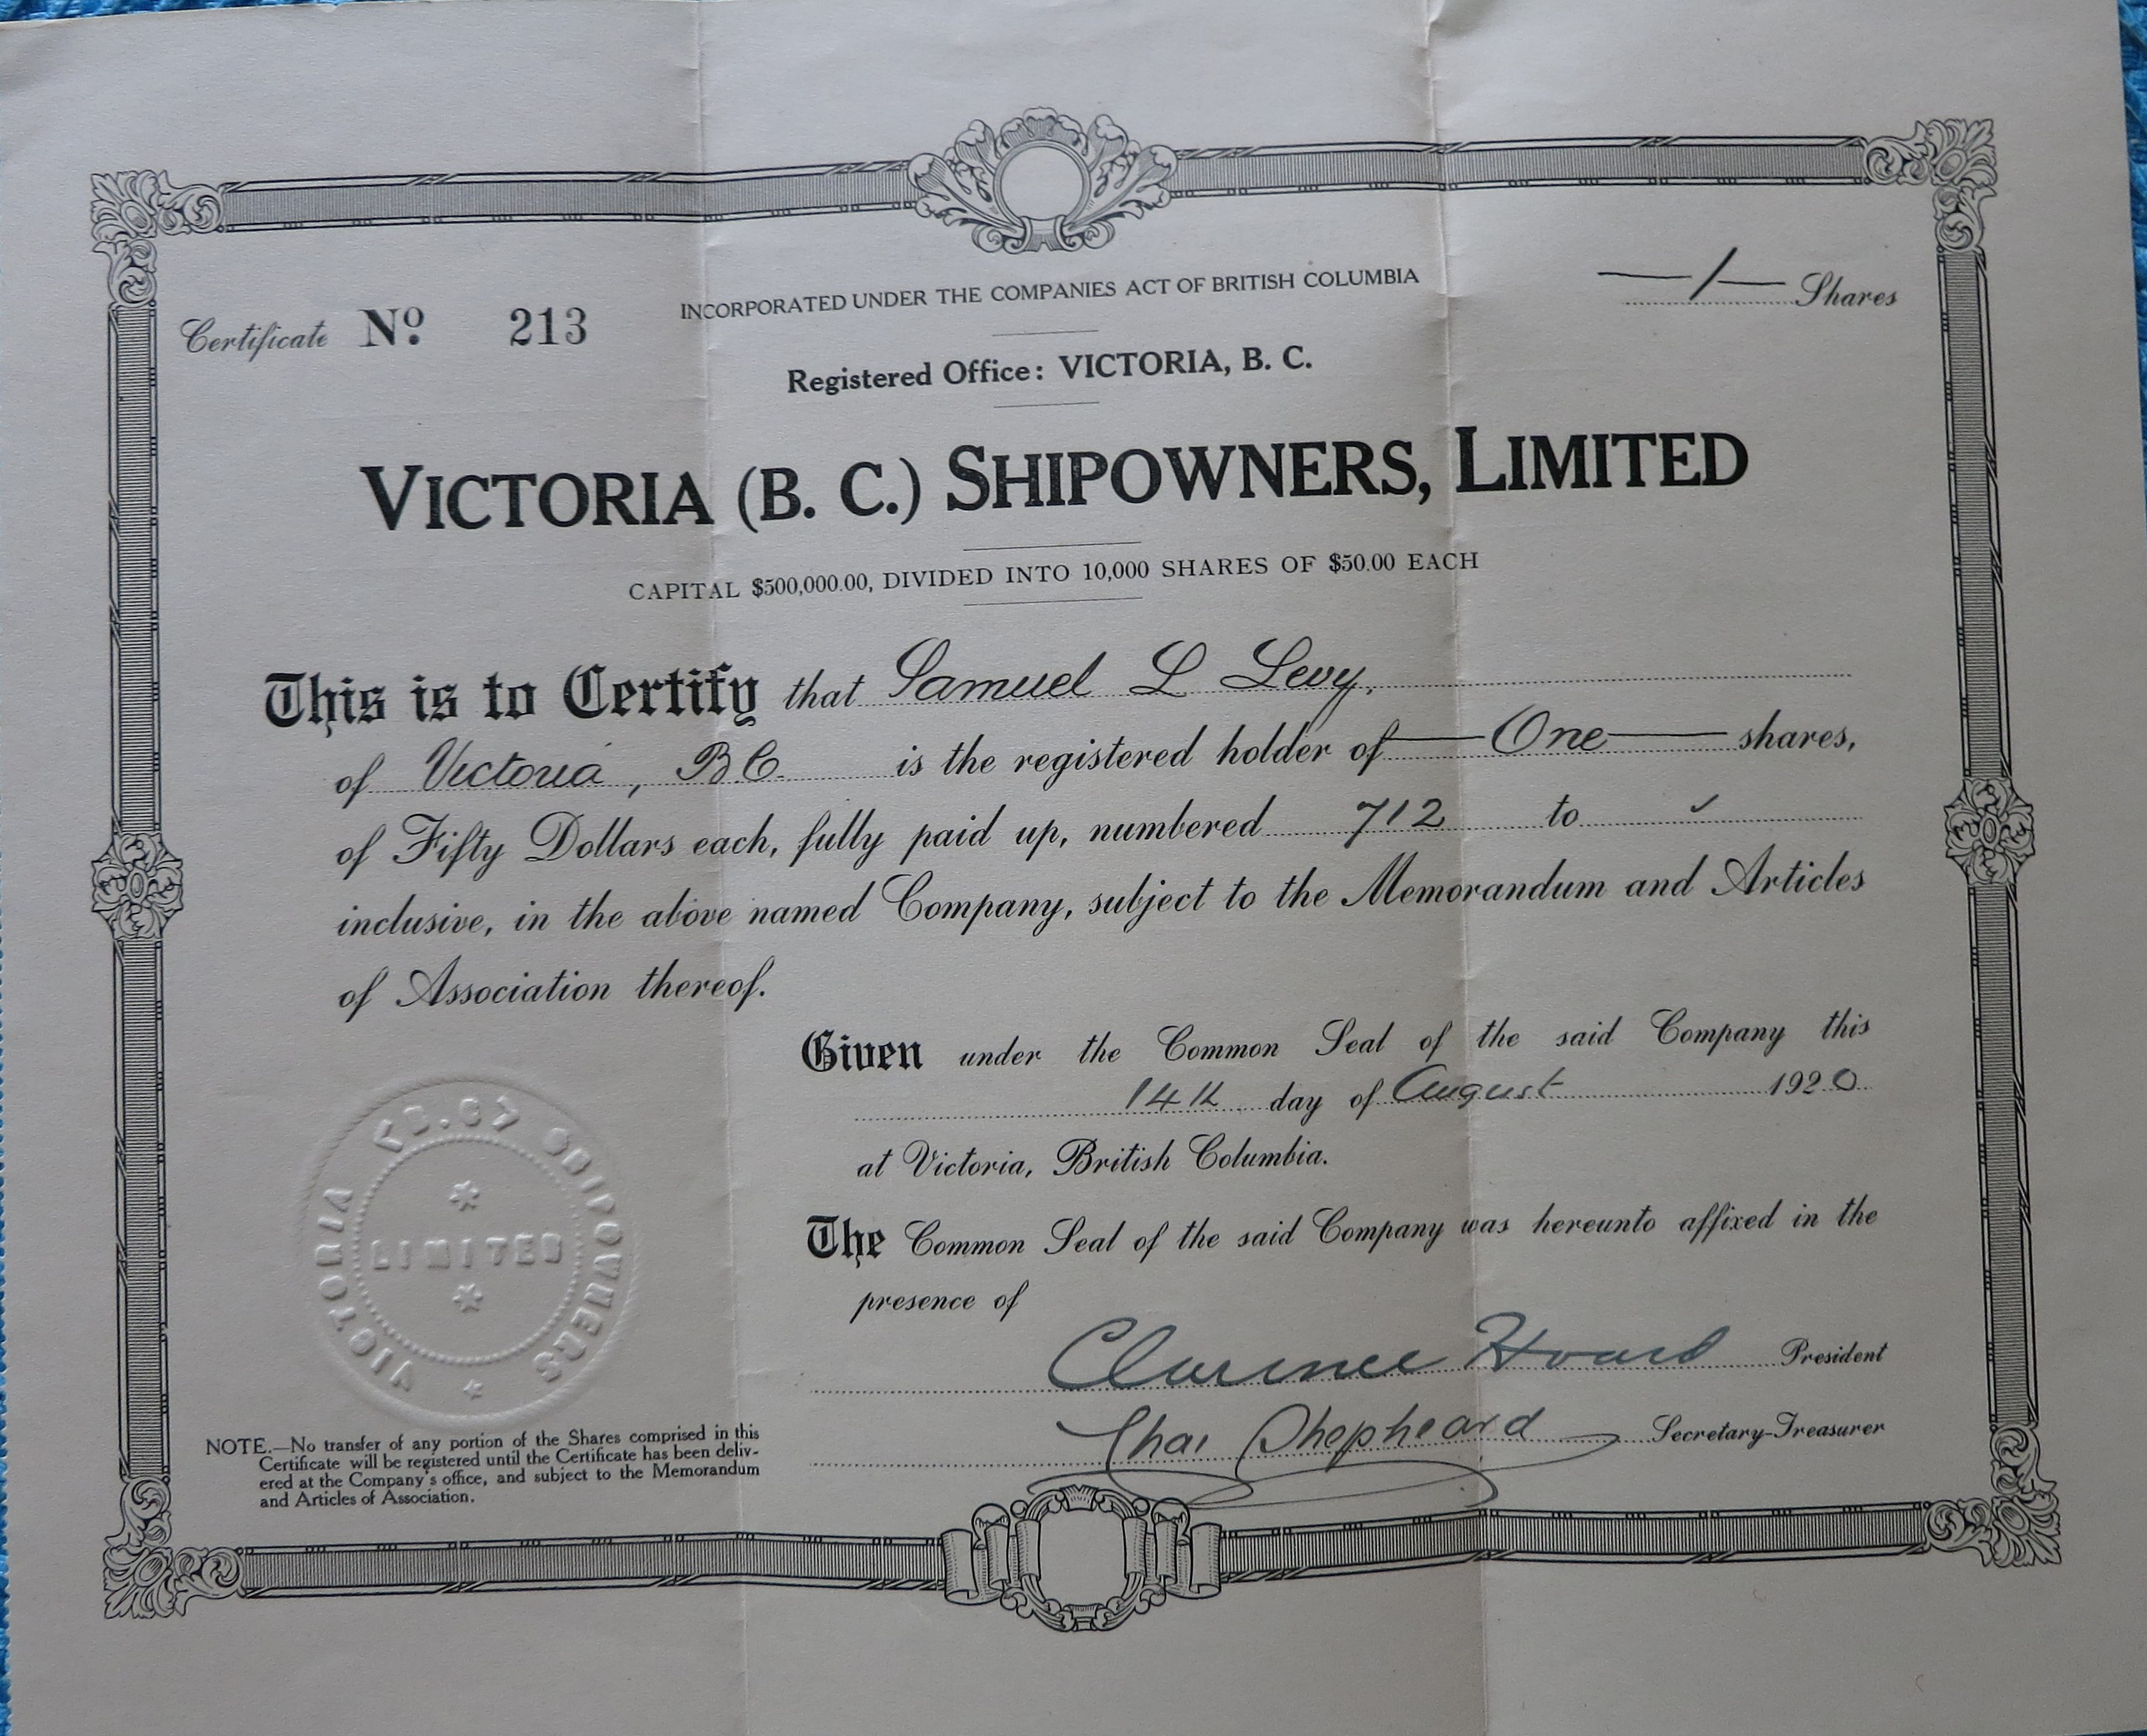 INCORPORATED UNDER THE COMPANIES ACT OF BRITISH COLUMBIA
—1— Shares
Certificate No. 213
Registered Office: VICTORIA, B. C.
VICTORIA (B. C.) SHIPOWNERS, LIMITED
CAPITAL $500,000.00, DIVIDED INTO 10,000 SHARES OF $50.00 EACH
This is to Certify that Samuel L Levy,
of Victoria, B.C. is the registered holder of —One— shares,
of Fifty Dollars each, fully paid up, numbered 712 to ✓
inclusive, in the above named Company, subject to the Memorandum and Articles
of Association thereof.
Given under the Common Seal of the said Company this
14th day of August 1920
at Victoria, British Columbia.
The Common Seal of the said Company was hereunto affixed in the
presence of
Clarence Hoard President
Chas Shepheard Secretary-Treasurer
VICTORIA (B.C) SHIPOWNERS
LIMITED
NOTE.—No transfer of any portion of the Shares comprised in this
Certificate will be registered until the Certificate has been deliv-
ered at the Company's office, and subject to the Memorandum
and Articles of Association.